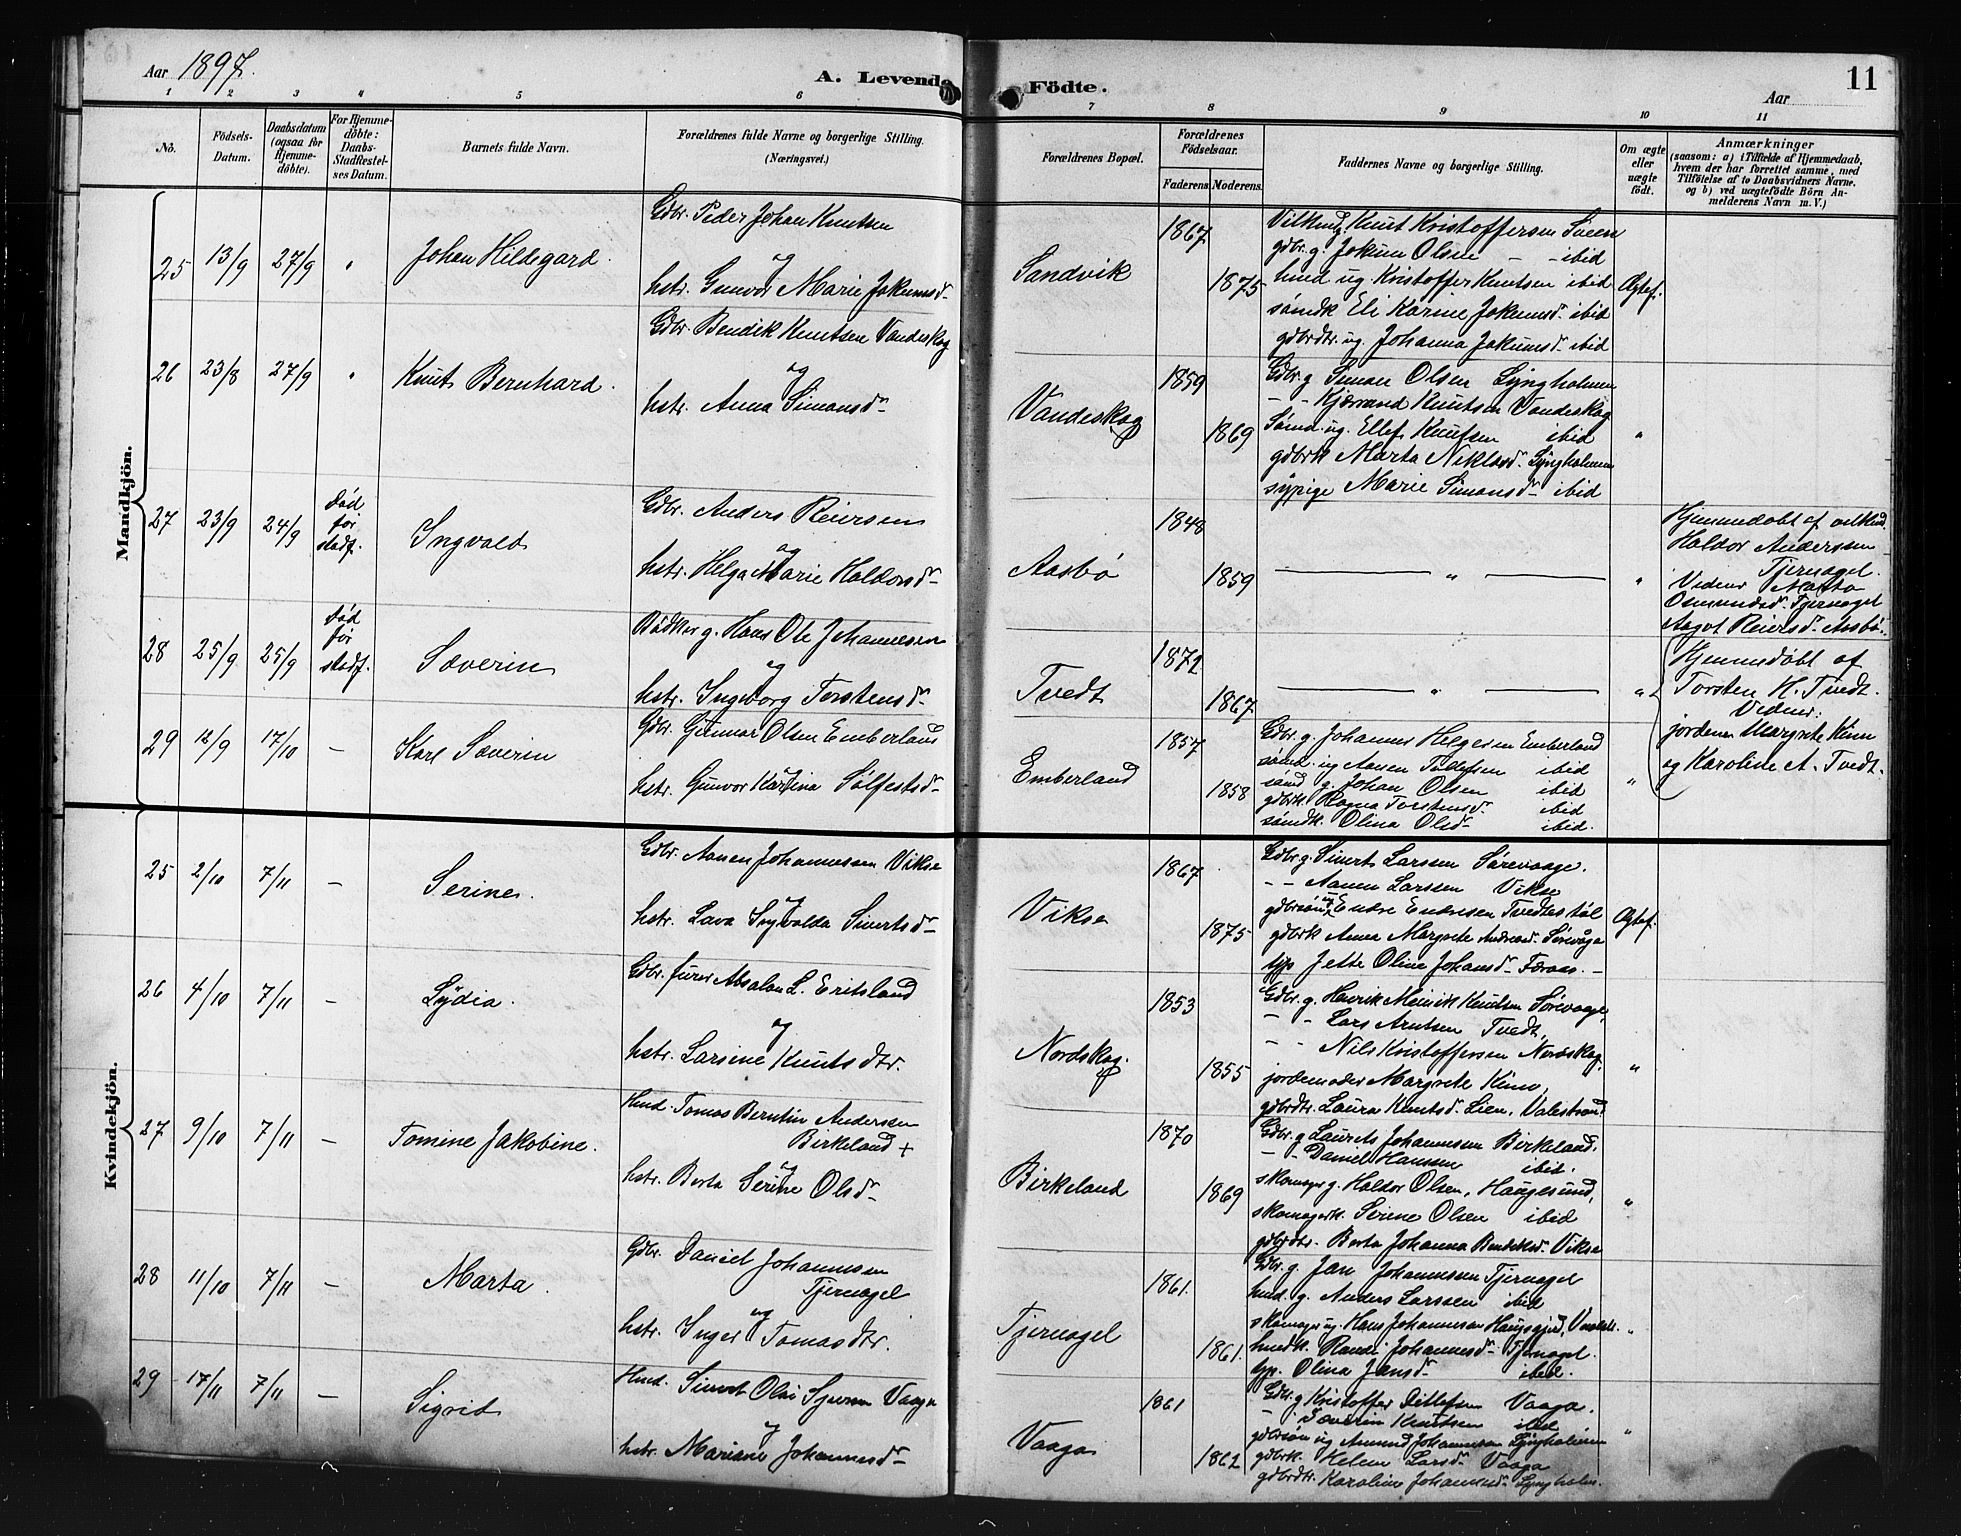 Aar 1897.
A. Levende Födte.
11
Aar
1 2 3 4 5 6 7 8 9 10 11
No.
Födsels-Datum.
Daabsdatum (ogsaa for Hjemme-döbte).
For Hjemme-döbte: Daabs-Stadfæstel-ses Datum.
Barnets fulde Navn.
Forældrenes fulde Navne og borgerlige Stilling.
(Næringsvei.)
Forældrenes Bopæl.
Forældrenes Födselsaar.
Faderens. Moderens.
Faddernes Navne og borgerlige Stilling.
Om ægte eller uægte födt.
Anmærkninger
(saasom: a) i Tilfælde af Hjemmedaab, hvem der har forrettet samme, med Tilföielse af to Daabsvidners Navne, og b) ved uægtefödte Börn An-melderens Navn m. V.)
Mandkjön.
25 13/9 27/9 " Johan Hildegard.
Gdbr. Peder Johan Knutsen
og
hstr. Gunvor Marie Jakumsd-
Sandvik
1867
1875
Knut Kristoffersen Sveen
gdbr. g. Jokum Olsen - - ibid
hmd ug. Kristoffer Knutsen ibid
sömdk Eli Karine Jokumsd. ibid
gdbrdtr. ug. Johanna Jakumsd- ibid
Ægtef.
26 23/8 27/9 " Knut Bernhard.
Gdbr. Bendik Knutsen Vandeskog
og
hstr. Anna Simonsd-
Vandeskog
1859
1869
Gdbr. g Simon Olsen Lyngholmen
- - Knutsen Vandeskog
ug. Ellef Knutsen ibid
gdbrk Marta Niklasd. Lyngholmen
sypige Marie Simonsd- ibid
"
27 23/9 24/9 Död for stadf. Ingvald
Gdbr. Anders Reiersen
og
hstr. Helga Marie Haldorsd-
Aasbö
1848
1859
"
"
Hjemmedöbt af
Haldor Anderssen
Tjernagel.
Vidner Marta
Osmundsd. Tjernagel
Aagot Reiersd. Aasbö.
28 25/9 25/9 Död for stadf. Sæverin
Bödker g. Hans Ole Johannesen
og
hstr. Ingeborg Torstensd-
Tvedt
1872
1867
"
"
Hjemmedöbt af
Torsten H. Tvedt.
Vidner:
jordemor Margrete Kinn
og Karoline A. Tvedt.
29 12/9 17/10 - Karl Sæverin
Gdbr. Gunnar Olsen Emberland
hstr. Gunvor Karina Solfestsd-
Emberland
1857
1858
Gdbr g. Johannes Helgesen Emberland
ug Aanen ibid
g. Johan Olsen ibid
gdbrk. Ragna Torstensd. ibid
sömdk. Olina Olsd- ibid.
"
Kvindekjön.
25 2/10 7/11 - Serine.
Gdbr. Aanen Johannessen Vikse
og
hstr. Lava Ingvalda Sivertsd-
Vikse
1867
1875
Gdbr g. Sivert Larssen Sörevaage.
- - Aanen Larssen Vikse
gdbrsön ug Endre Endresen Tvedtestöl
gdbrk Anna Margrete Andreasd. Sörevåge
typ Jette Olina Johansd-
Ægtef.
26 4/10 7/11 - Lydia.
Gdbr. Absalon L. Eritsland
og
hstr. Larsine Knutsdtr.
Nordskog.
1853
1855
Gdbr. g. Henrik Meinik Knutsen Sörevaage,
- - Lars Arntsen Tvedt,
- - Nils Kristoffersen Nordskog,
jordemoder Margrete Kinn,
gdbrdtr. Laura Knutsd. Lien, Valestrand
"
27 9/10 7/11 - Tomine Jakobine.
Hmd. Tomas Berntin Andersen
Birkeland +
og
hstr. Berta Serine Olsd-
Birkeland
1870
1869
Gdbr. g Laurits Johannesen Birkeland.
- - Daniel Hanssen ibid.
skomager g. Haldor Olsen, Haugesund,
skomagerk. Serine Olsen ibid
gdbrdtr. Berta Johanna Bendiksd. Vikse
"
28 11/10 7/11 - Marta.
Gdbr. Daniel Johannesen
Tjernagel
og
hstr. Inger Tomasdtr.
Tjernagel
1861.
1861.
Gdbr. g. Jan Johannesen Tjernagel
hmd. g. Anders Larssen ibid
skomager ug. Hans Johannesen
hmdk. Randi Johannesd- Tjernagel.
typ. Olina Jansd- ibid.
"
29 17/11 7/11 - Sigrid
Hmd. Sivert Olai Vaage
og
hstr. Mariane Johannesd-
Vaage
1861
1862
Gdbr. g Kristoffer Ditlefsen Vaage.
- Sæverin Knutsen ibid
gdbrsön ug Amund Johannesen Lyngholmen
gdbrk. Helene Larsd. Vaage
gdbrdtr. Karoline Johannesd- Lyngholm.
"